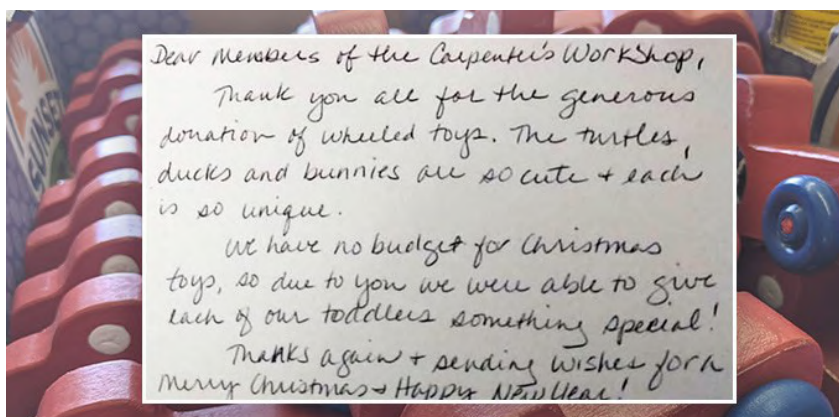 Dear Members of the Carpenter's Workshop,
Thank you all for the generous
donation of wheeled toys. The turtles,
ducks and bunnies are so cute + each
is so unique.
We have no budget for Christmas
toys, so due to you we were able to give
each of our toddlers something special!
Thanks again + sending wishes for a
Merry Christmas + Happy New Year!
SUNSET